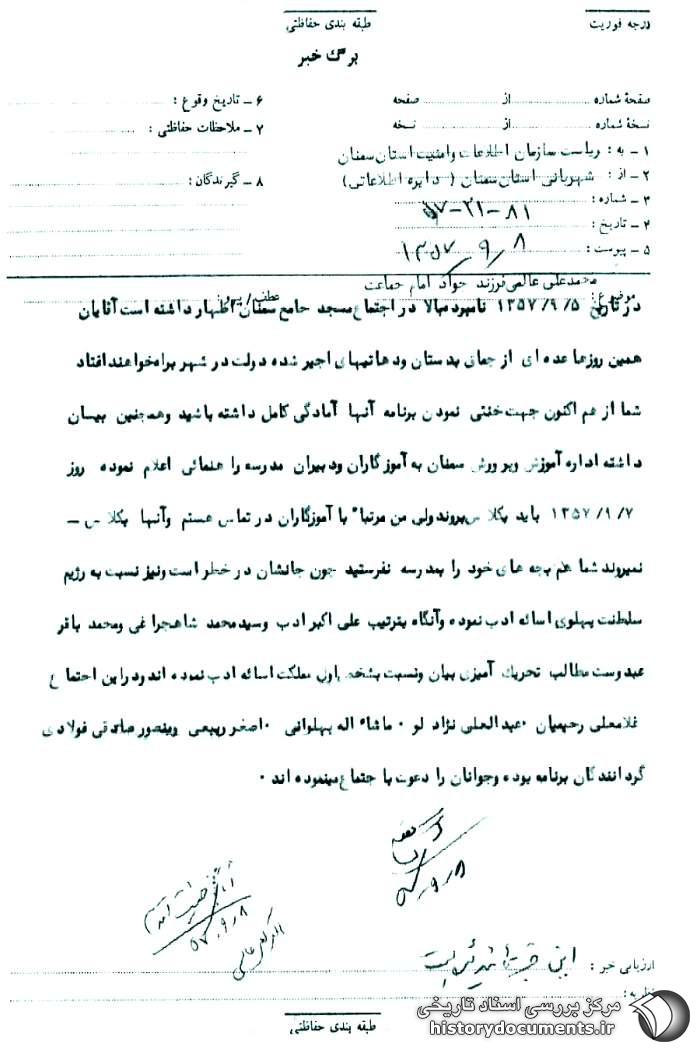 درجه فوریت
طبقه بندی حفاظتی
برگ خبر
صفحهٔ شماره از صفحه
نسخهٔ شماره از نسخه
۱ – به : ریاست سازمان اطلاعات وامنیت استان سمنان
۲ – از : شهربانی استان سمنان ( دایره اطلاعاتی )
۳ – شماره : ۸۱-۲۱-۵۷
۴ – تاریخ :
۵ – پیوست : ۱۳۵۷/۹/۸
۶ – تاریخ وقوع :
۷ – ملاحظات حفاظتی :
۸ – گیرندگان :
موضوع : محمدعلی عالمی فرزند جواد امام جماعت
عطف / پیرو :
در تاریخ ۱۳۵۷/۹/۵ نامبرده بالا در اجتماع مسجد جامع سمنان اظهار داشته است آقایان
همین روزها عده ای از چماق بدستان ودهاتیهای اجیر شده دولت در شهر براه خواهند افتاد
شما از هم اکنون جهت خنثی نمودن برنامه آنها آمادگی کامل داشته باشید وهمچنین بیسان
داشته اداره آموزش وپرورش سمنان به آموزگاران ودبیران مدرسه راهنمائی اعلام نموده روز
۱۳۵۷/۹/۷ باید بکلاس بروند ولی من مرتباً با آموزگاران در تماس هستم وآنها بکلاس –
نمیروند شما هم بچه های خود را بمدرسه نفرستید چون جانشان در خطر است ونیز نسبت به رژیم
سلطنت پهلوی اسائه ادب نموده وآنگاه بترتیب علی اکبر ادب وسیدمحمد شاهچراغی ومحمد باقر
عبدوست مطالب تحریک آمیزی بیان ونسبت بشخص اول مملکت اسائه ادب نموده اند ودراین اجتماع
غلامعلی رحیمیان ۰ عبدالعلی نژاد لو ۰ ماشاء اله پهلوانی ۰ اصغر ربیعی ومنصور صادقی فولادی
گردانندگان برنامه بوده وجوانان را دعوت با جتماع مینموده اند ۰
۵۷-۹-۸
۵۷-۹-۸
ارزیابی خبر : این خبر
نظریه :
طبقه بندی حفاظتی
مرکز بررسی اسناد تاریخی
historydocuments.ir